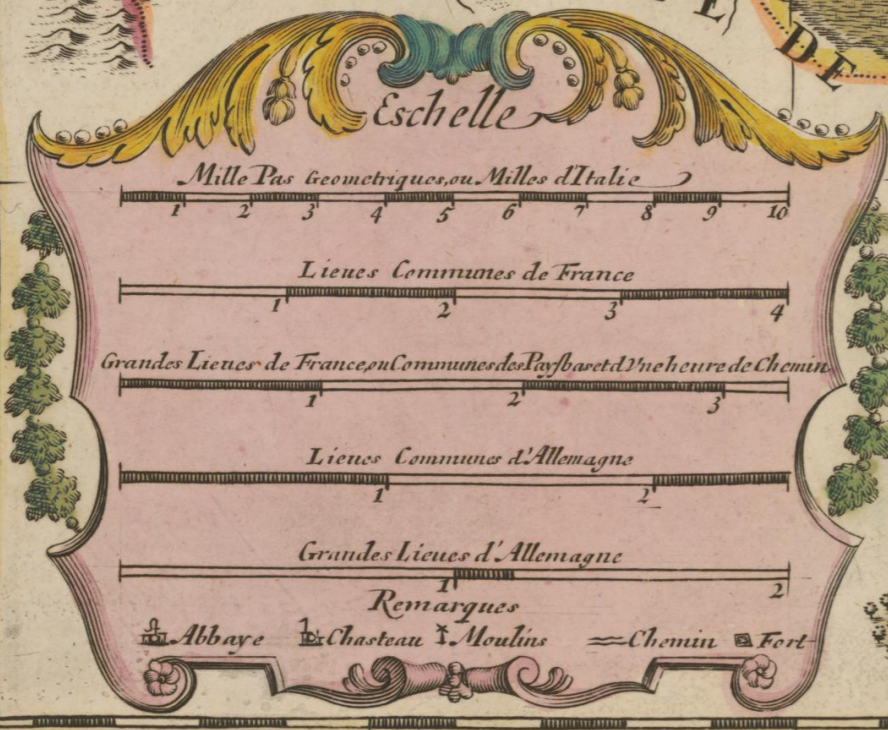 E
DE
Eschelle
Mille Pas Geometriques, ou Milles d'Italie
1 2 3 4 5 6 7 8 9 10
Lieues Communes de France
1 2 3 4
Grandes Lieues de France, ou Communes des Paysbas et d'Vne heure de Chemin
1 2 3
Lieues Communes d'Allemagne
1 2
Grandes Lieues d'Allemagne
1 2
Remarques
Abbaye Chasteau Moulins Chemin Fort